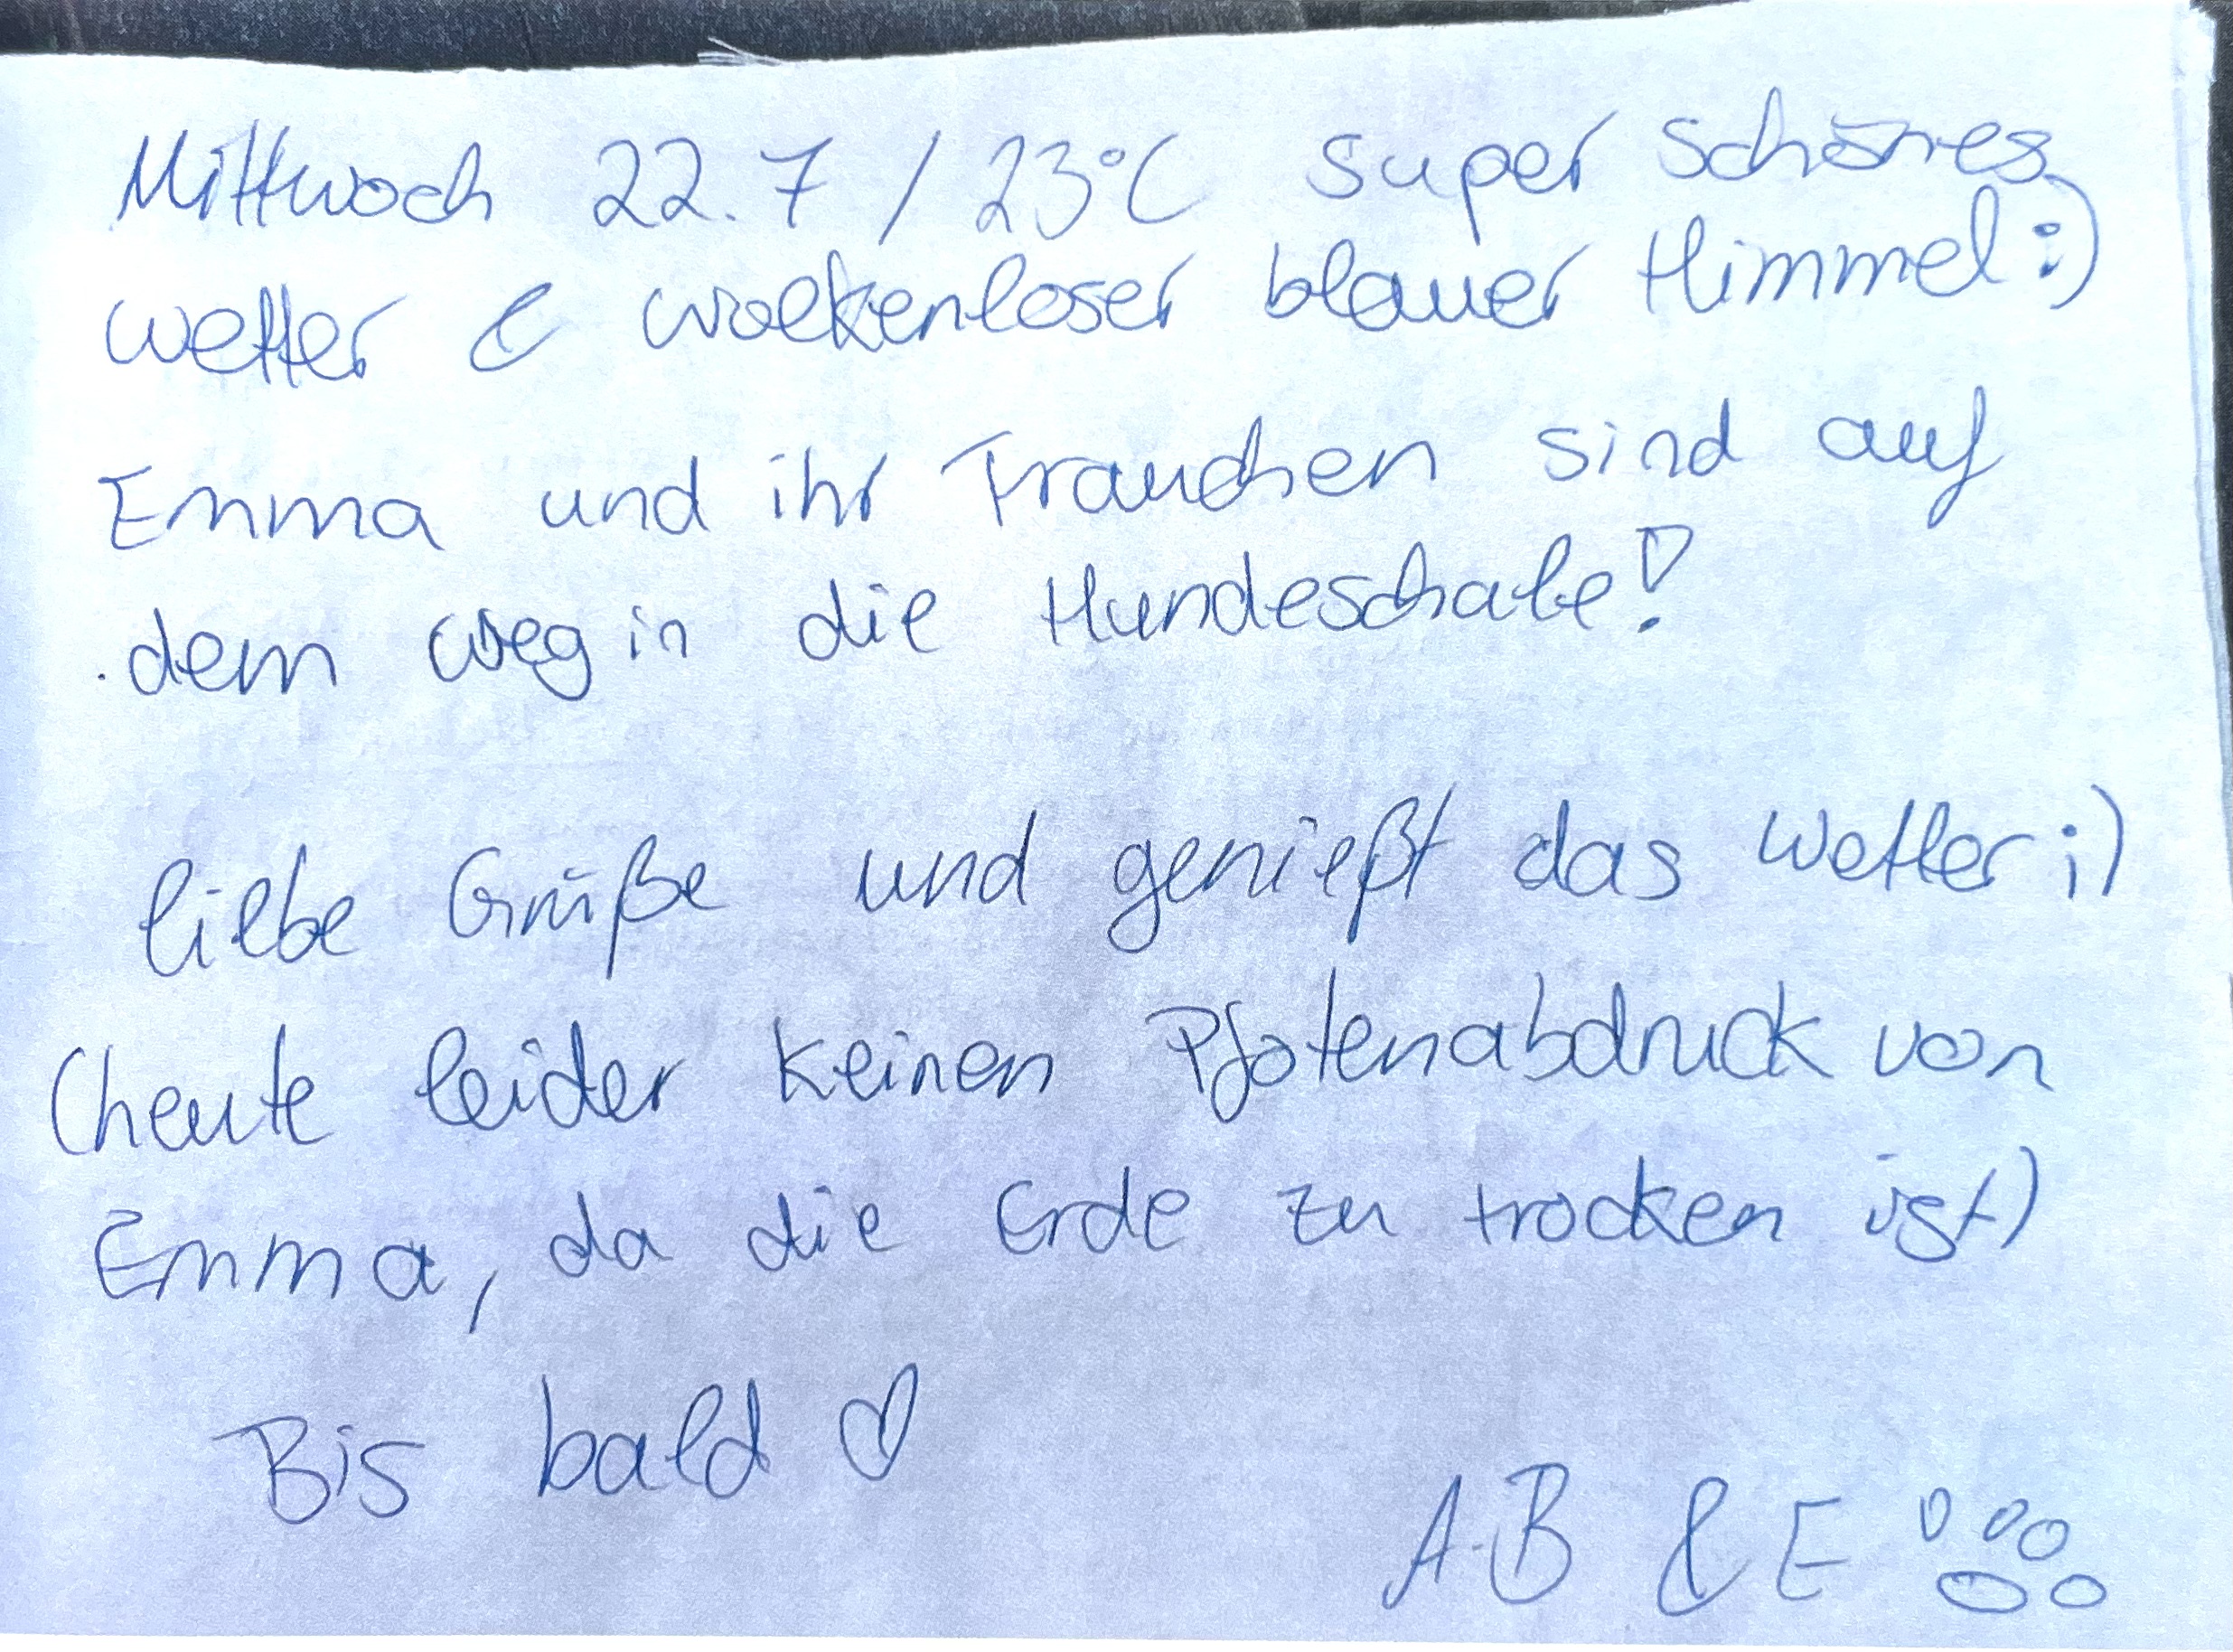 Mittwoch 22.7 / 23°C super schönes
Wetter & wolkenloser blauer Himmel :)
Emma und ihr Frauchen sind auf
dem Weg in die Hundeschule!
liebe Grüße und genießt das Wetter ;)
(heute leider keinen Pfotenabdruck von
Emma, da die Erde zu trocken ist)
Bis bald ♡
A.B & E